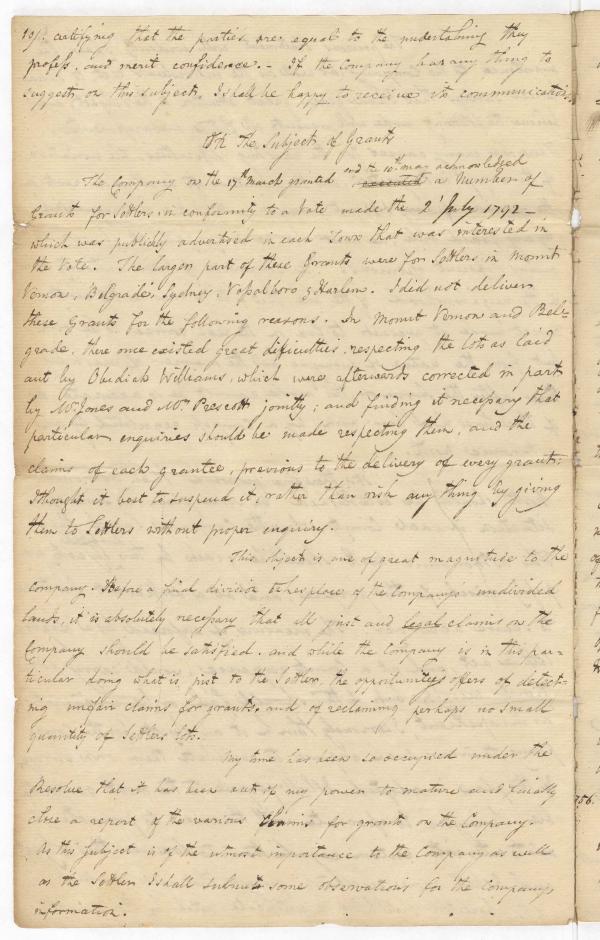 certifying that the parties are equal to the undertaking they
profess, and merit confidence. - If the Company has any thing to
suggest on this subject, I shall be happy to receive its communications.
On The Subject of Grants
and the 10th may acknowledged
The Company on the 17th March granted executed a Number of
Grants for Settlers in conformity to a Vote made the 2d July 1792 -
which was publickly advertised in each Town that was interested in
the Vote. The larger part of these Grants were for Settlers in Mount
Vernon, Belgrade, Sydney, Vassalboro & Harlem. I did not deliver
these Grants for the following reasons. In Mount Vernon and Bel=
grade, there once existed great difficulties, respecting the lots as laid
out by Obediah Williams, which were afterwards corrected in part
by Mr. Jones and Mr. Prescott jointly; and finding it necessary that
particular enquiries should be made respecting them, and the
claims of each grantee, previous to the delivery of every grant;
I thought it best to suspend it, rather than risk any thing by giving
them to Settlers without proper enquiry.
This object is one of great magnitude to the
Company. Before a final division takes place of the Companys undivided
lands, it is absolutely necessary that all just and legal claims on the
Company should be satisfied. and while the Company is in this par=
ticular doing what is just to the Settler, the opportunity offers of detect=
ing unfair claims for grants, and of reclaiming perhaps no small
quantity of Settlers lots.
My time has been so occupied under the
Resolve that it has been out of my power to mature and finally
close a report of the various Claims for grants on the Company.
As this Subject is of the utmost importance to the Company as well
as the Settler I shall submit some observations for the Companys
information.